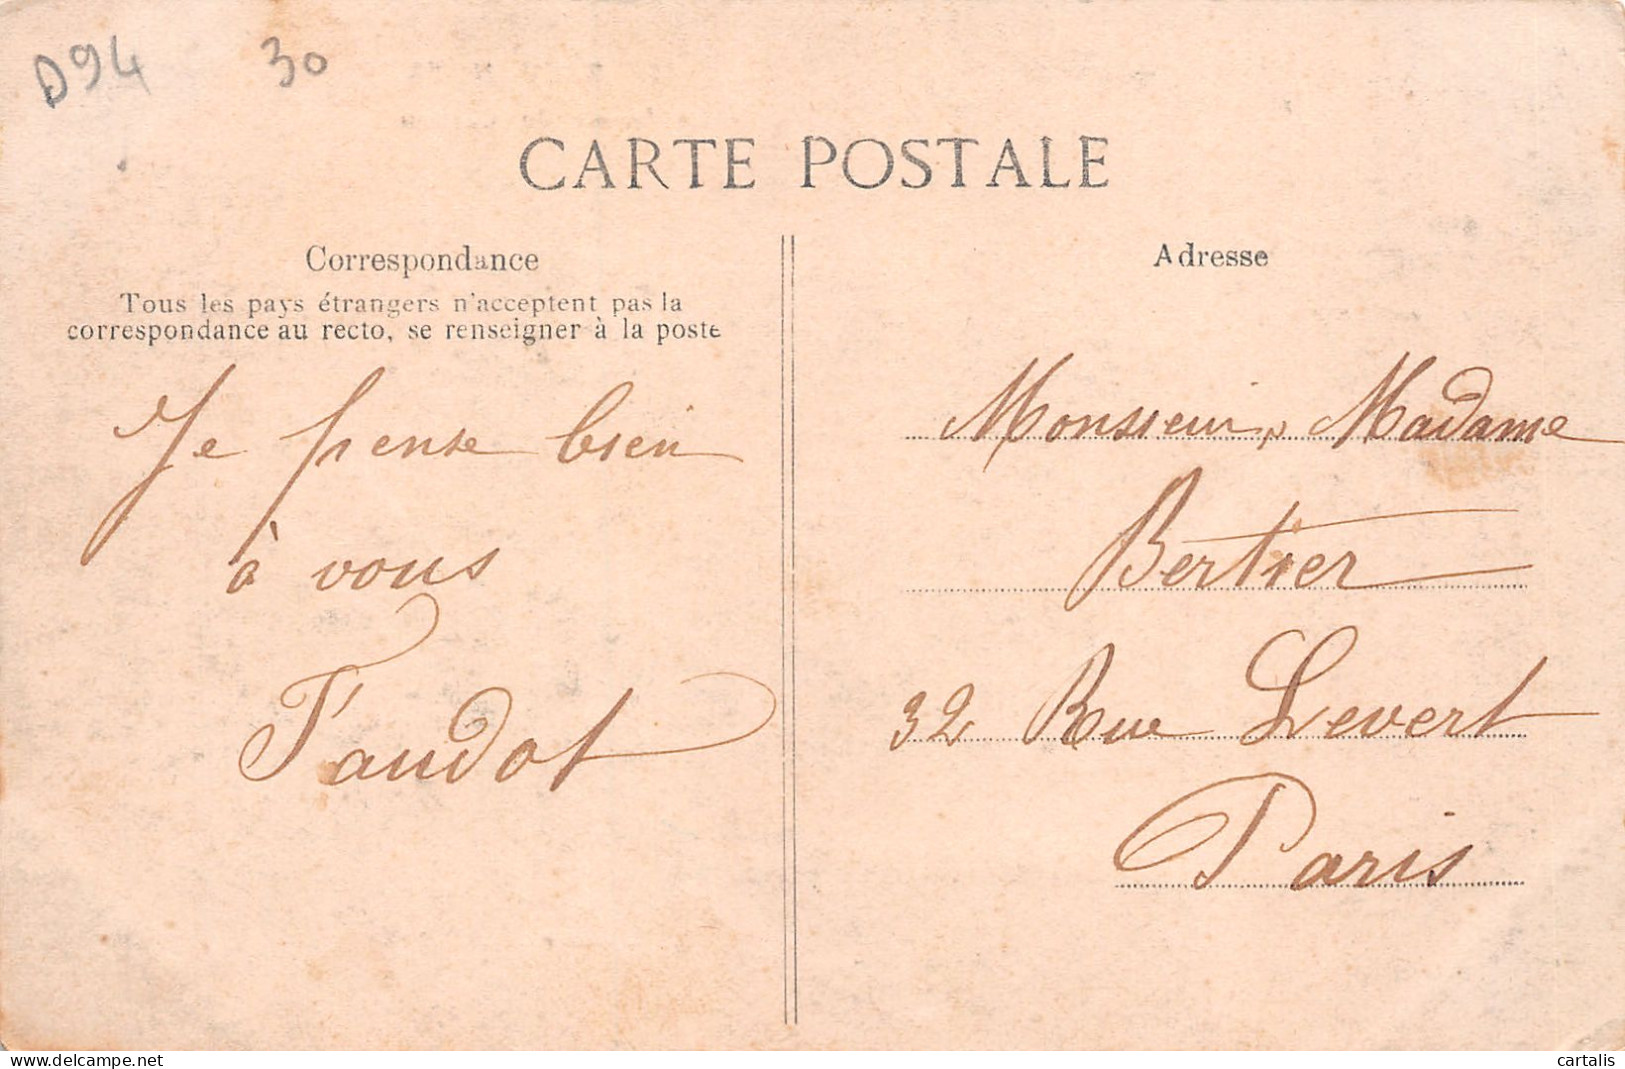 D94 30
CARTE POSTALE
Correspondance
Tous les pays étrangers n'acceptent pas la
correspondance au recto, se renseigner à la poste
Je pense bien
à vous
Faudot
Adresse
Monsieur, Madame
Bertier
32 Rue Levert
Paris
delcampe.net
cartalis